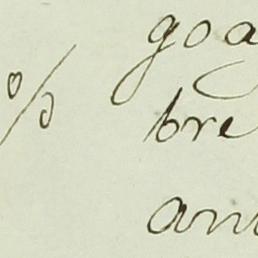 %
goa
bre
an